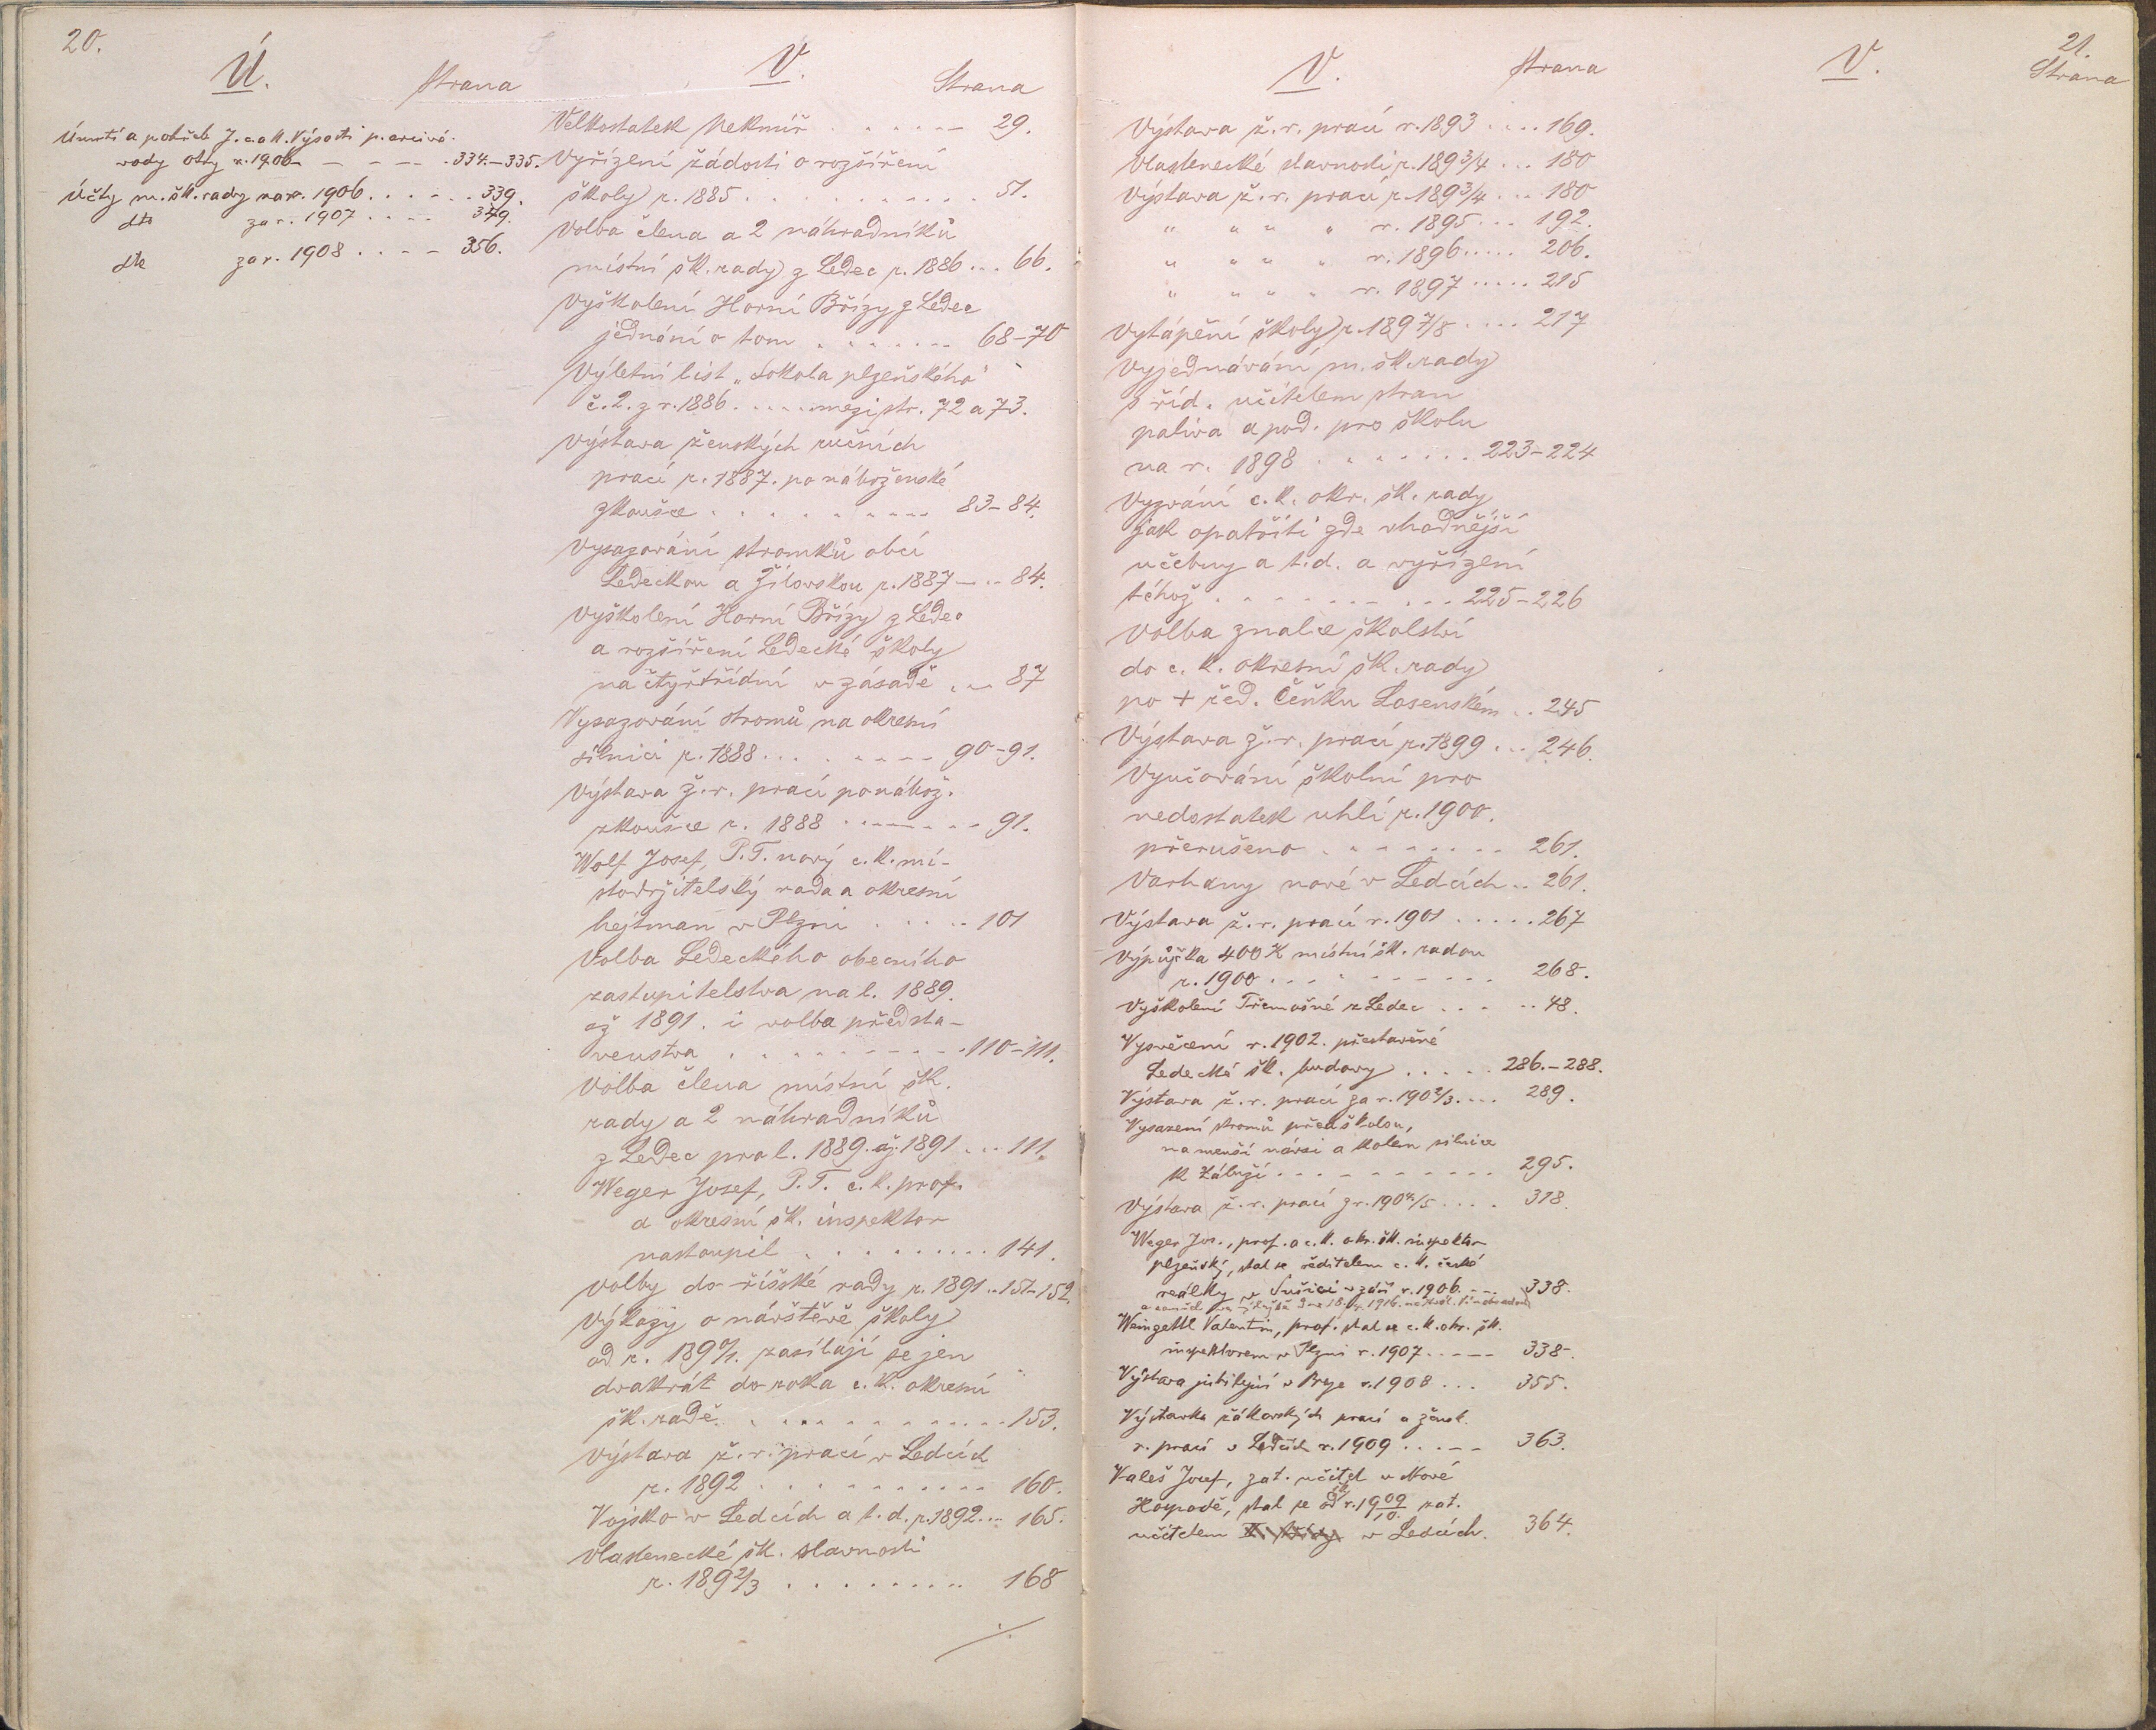 20.
Ú.
Strana
Úmrtí a pohřeb J. c. a k. Výsosti p. arcivé-
vody Otty r. 1906 – – – – . 334.–335.
Účty m. šk. rady na r. 1906 . . . . . . 339.
dto za r. 1907 . . . . 349.
dto za r. 1908 . . . . 356.
V.
Strana
Velkostatek Nekmíř . . . . . . 29.
Vyřízení žádosti o rozšíření
školy r. 1885 . . . . . . . . . . 51.
Volba člena a 2 náhradníků
místní šk. rady z Ledec r. 1886 . . . 66.
Vyškolení Horní Břízy z Ledec
jednání o tom . . . . . . . 68–70
Výletní list „Sokola plzeňského"
č. 2. z r. 1886 . . . . . mezi str. 72 a 73.
Výstava ženských ručních
prací r. 1887. po náboženské
zkoušce . . . . . . . . . . 83–84.
Vysazování stromků obcí
Ledeckou a Žilovskou r. 1887 – . . 84.
Vyškolení Horní Břízy z Ledec
a rozšíření Ledecké školy
na čtyřtřídní v zásadě . . . 87
Vysazování stromů na okresní
silnici r. 1888 . . . . . . . . 90–91.
Výstava ž. r. prací po nábož.
zkoušce r. 1888 . . . . . . . . 91.
Wolf Josef, P. T. nový c. k. mí-
stodržitelský rada a okresní
hejtman v Plzni . . . . . 101
Volba Ledeckého obecního
zastupitelstva na l. 1889.
až 1891. i volba předsta-
venstva . . . . . . . . . . 110–111.
Volba člena místní šk.
rady a 2 náhradníků
z Ledec pro l. 1889. až 1891 . . . 111.
Weger Josef, P. T. c. k. prof.
a okresní šk. inspektor
nastoupil . . . . . . . . . 141.
Volby do říšské rady r. 1891 . . 151–152.
Výkazy o návštěvě školy
od r. 1890/1. zasílají se jen
dvakrát do roka c. k. okresní
šk. radě . . . . . . . . . . . 153.
Výstava ž. r. prací v Ledcích
r. 1892 . . . . . . . . . . . 160.
Vojsko v Ledcích a t. d. r. 1892 . . . 165.
Vlastenecké šk. slavnosti
r. 1892/3 . . . . . . . . . 168
./.
V.
Strana
Výstava ž. r. prací r. 1893 . . . . 169.
Vlastenecké slavnosti r. 1893/4 . . . 180
Výstava ž. r. prací r. 1893/4 . . . 180
" " " " r. 1895 . . . 192.
" " " " r. 1896 . . . . . 206.
" " " " r. 1897 . . . . . 215
Vytápění školy r. 1897/8 . . . . 217
Vyjednávání m. šk. rady
s říd. učitelem stran
paliva a pod. pro školu
na r. 1898 . . . . . . . 223–224
Vyzvání c. k. okr. šk. rady
jak opatřiti zde vhodnější
učebny a t. d. a vyřízení
téhož . . . . . . . . . . 225–226
Volba znalce školství
do c. k. okresní šk. rady
po + řed. Čeňku Losenském . . 245
Výstava ž. r. prací r. 1899 . . . 246.
Vyučování školní pro
nedostatek uhlí r. 1900.
přerušeno . . . . . . . . 261.
Varhany nové v Ledcích . . 261.
Výstava ž. r. prací r. 1901 . . . . . 267
Výpůjčka 400 K místní šk. radou
r. 1900 . . . . . . . . . . 268.
Vyškolení Třemošné z Ledec . . . . . 48.
Vysvěcení r. 1902. přestavěné
Ledecké šk. budovy . . . . . 286.–288.
Výstava ž. r. prací za r. 1902/3. . . . 289.
Vysazení stromů před školou,
na menší návsi a kolem silnice
k Záluží . . . . . . . . . . 295.
Výstava ž. r. prací z r. 1904/5 . . . . 318.
Weger Jos., prof. a c. k. okr. šk. inspektor
plzeňský, stal se ředitelem c. k. české
reálky v Sušici v září r. 1906. . . . 338.
Weingettl Valentin, prof. stal se c. k. okr. šk.
inspektorem v Plzni r. 1907 . . . . . 338.
Výstava jubilejní v Praze r. 1908 . . . 355.
Výstavka žákovských prací a žensk.
r. prací v Ledcích r. 1909 . . . . . 363.
Valeš Josef, zat. učitel v Nové
Hospodě, stal se od r. 1909/10. zat.
učitelem II. třídy v Ledcích. 364.
V.
21.
Strana